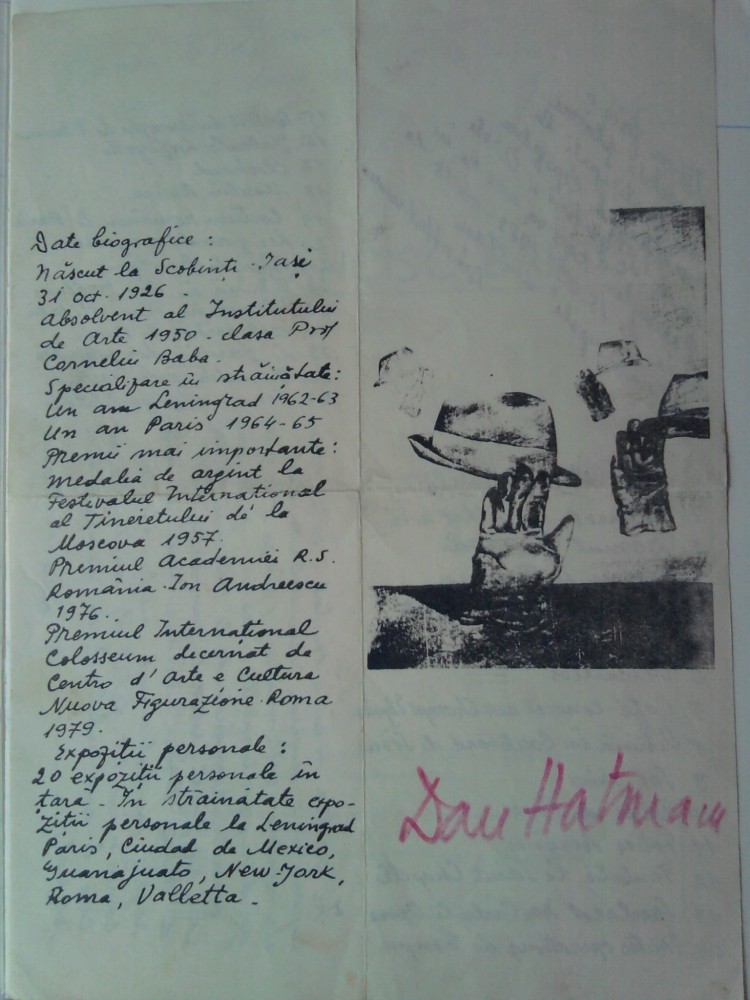 Date biografice :
Născut la Scobinți - Iași
31 oct. 1926 -
absolvent al Institutului
de Arte 1950 - clasa Prof
Corneliu Baba.
Specializare în străinătate:
Un an Leningrad 1962-63
Un an Paris 1964-65
Premii mai importante:
medalia de argint la
Festivalul International
al Tineretului de la
Moscova 1957.
Premiul Academiei R.S.
România - Ion Andreescu
1976.
Premiul International
Colosseum decernat de
Centro d'Arte e Cultura
Nuova Figurazione - Roma
1979.
Expoziții personale :
20 expoziții personale în
țară - În străinătate expo-
ziții personale la Leningrad
Paris, Ciudad de Mexico,
Guanajuato, New-York,
Roma, Valletta -
Dan Hatmanu